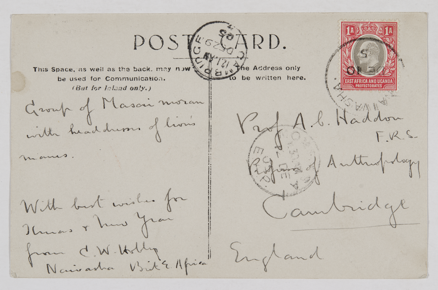 POST CARD.
This Space, as well as the back, may now
be used for Communication.
(But for Inland only.)
The Address only
to be written here.
Group of Masai moran
with headdress of lion's
manes.
With best wishes for
Xmas & New Year
from C. W. Hobley
Naivasha Brit E Africa
Prof A. C. Haddon
F.R.S.
Anthropology
Cambridge
England
EAST AFRICA AND UGANDA
PROTECTORATES
CAMBRIDGE
DE 29
05
NAIVASHA